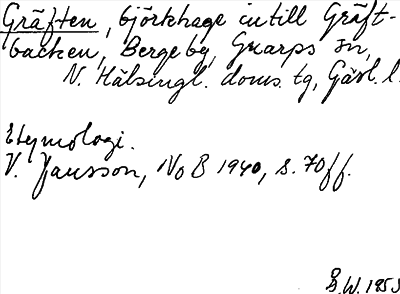 Gräften, björkhage intill Gräft-
backen, Berge by, Gnarps sn,
N. Hälsingl. doms. tg, Gävl. l.
Etymologi.
V. Jansson, NoB 1940, s. 70ff.
B.W. 1953